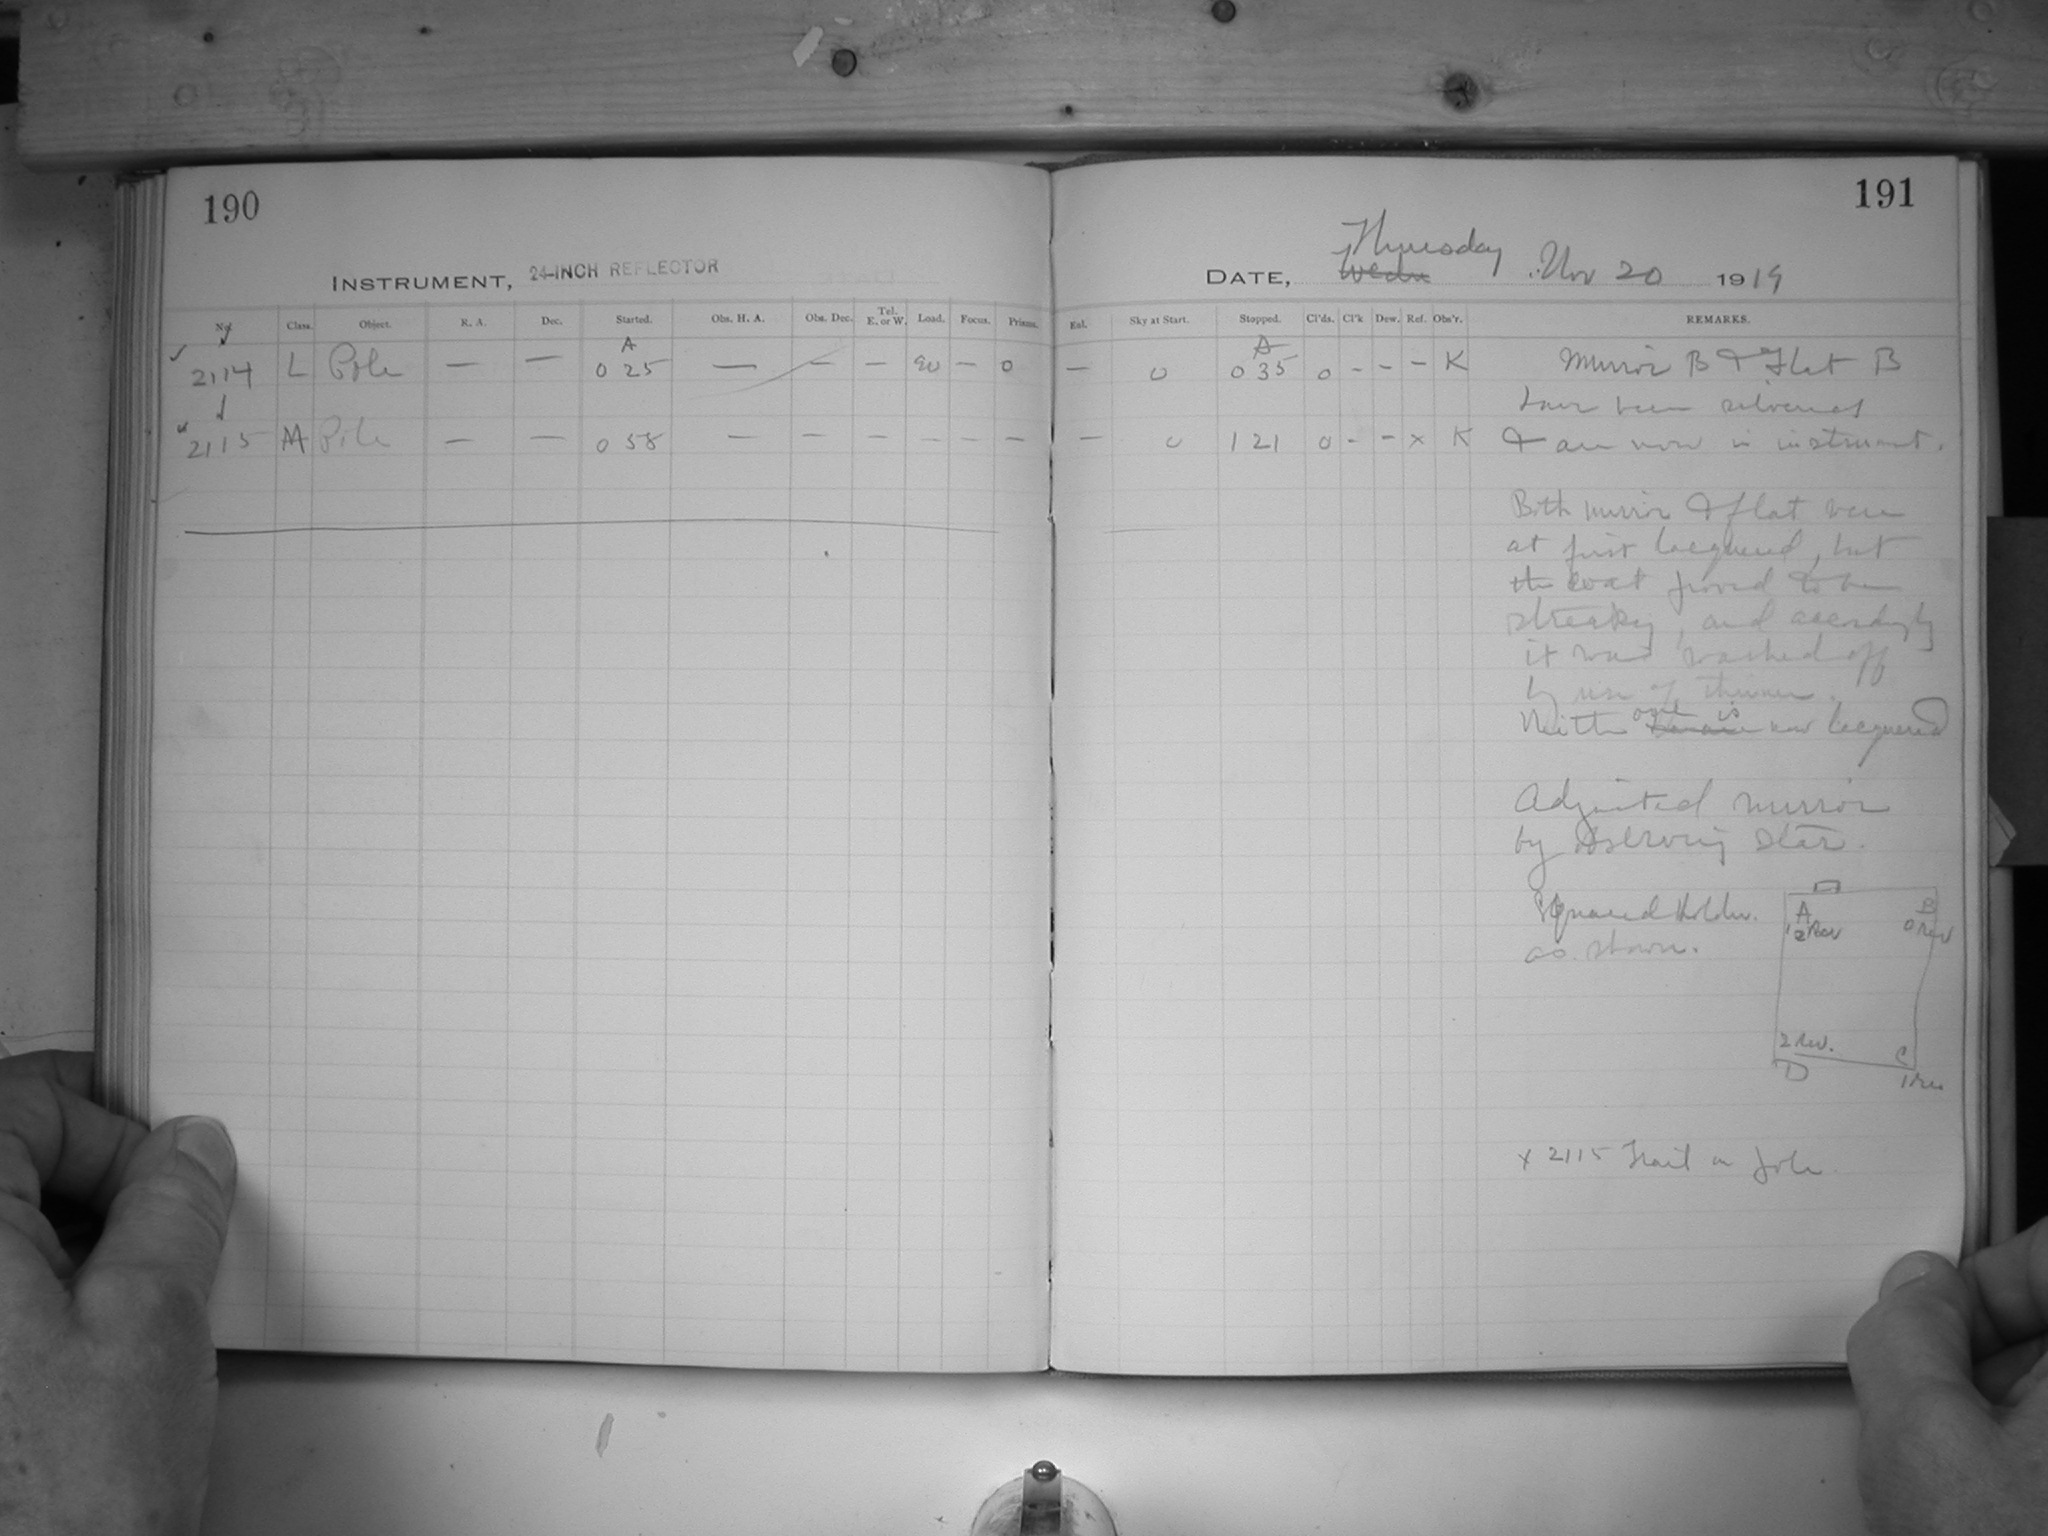 190
INSTRUMENT, 24-INCH REFLECTOR
No. Class. Object. R. A. Dec. Started. Obs. H. A. Obs. Dec. Tel. E. or W. Load. Focus. Prisms.
A
✓ 2114 L Pole — — 0 25 — — — — 0
✓ 2115 A Pole — — 0 58 — — — — — —
191
Thursday
DATE, Wedn Nov 20 1919
Ext. Sky at Start. Stopped. Cl'ds. Cl'k Dew. Ref. Obs'r. REMARKS.
A
— 0 0 35 0 - - - K Mirror B & Flat B
have been silvered
— 0 1 21 0 - - x K & are now in instrument.
Both mirror & flat were
at first lacquered, but
the coat proved to be
streaky, and accordingly
it was washed off
by use of thinner.
one is
Neither now lacquered
Adjusted mirror
by observing star.
Squared Holder.
as shown.
A B
Rev 0 Rev
2 Rev. C
D 1 Rev
x 2115 Trail on Pole